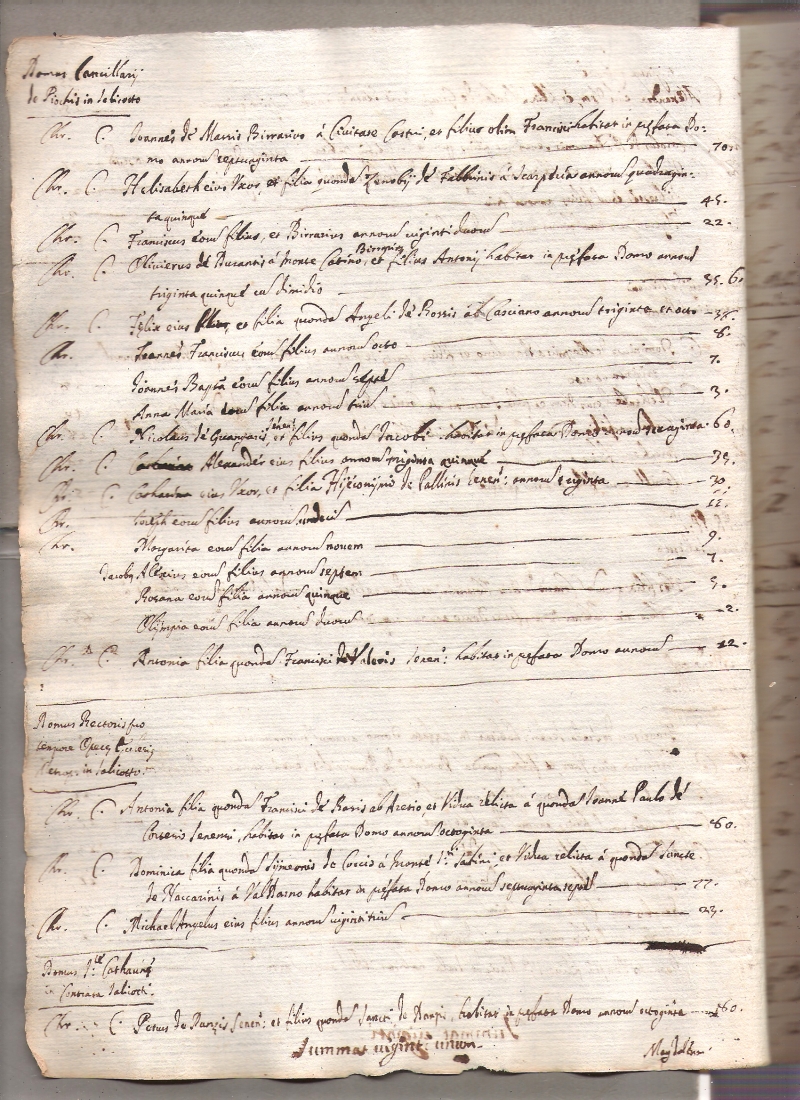 Domus Cancillarij
de Piochis in Salicotto
Chr. C. Joannes de Marris Birrarius à Civitate Castri, et filius olim Francisci habitat in pefata Do-
mo annorum septuaginta 70.
Chr. C. Helisabeth eius Uxor, et filia quondam Zenobij de Fabbrinis à Scarperia annorum quadragin-
taquinque 45.
Chr. C. Franciscus eorum filius, et Birrarius annorum viginti duorum 22.
Chr. C. Olivierus de Durantis à Monte Catino, et filius Antonij habitat in pefata Domo annorum
triginta quinque cum dimidio 35. 6
Chr. C. Felix eius Uxor, et filia quondam Angeli de Rossis à Casciano annorum triginta et octo 38.
Chr. Joannes Franciscus eorum filius annorum octo 8.
Joannes Bapta eorum filius annorum septem 7.
Anna Maria eorum filia annorum trium 3.
Chr. C. Nicolaus de Senen: et filius quondam Jacobi habitat in pefata Domo annorum sexaginta 60.
Chr. C. Alexander eius filius annorum triginta quinque 35.
Chr. C. Catharina eius Uxor, et filia Hijeronijmo de Pallinis Senen: annorum triginta 30.
Chr. eorum filius annorum undecim 11.
Chr. Margarita eorum filia annorum novem 9.
Jacobus Alexius eorum filius annorum septem 7.
Rosana eorum filia annorum quinque 5.
Olympia eorum filia annorum duorum 2.
Chr. C. Antonia filia quondam Francisci de Valeris Senen: habitat in pefata Domo annorum 12.
Domus Rectoris pro
tempore
in Salicotto
Chr. C. Antonia filia quondam Francisci de Basis ab Aretio, et Vidua relicta à quondam Joanne Paulo de
Corterio Senensi, habitat in pefata Domo annorum octoginta 80.
Chr. C. Dominica filia quondam Symeonis de Coccis à Monte S. Sabini, et Vidua relicta à quondam Sancte
de Naccarinis à Val Darno habitat in pefata Domo annorum septuaginta septem 77.
Chr. C. Michael Angelus eius filius annorum viginti trium 23.
Domus S. Catharinę
in Contrata Salicotti
Chr. C. Petrus de Senen: et filius quondam Sancti de habitat in pefata Domo annorum octoginta 80.
Summat viginti unum.
Magdalena